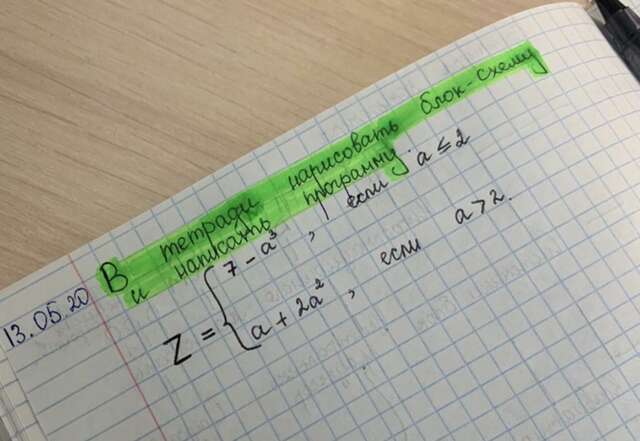 13.05.20
В тетради нарисовать блок-схему
и написать программу.
Z = { 7 - a³, если a ≤ 2
a + 2a², если a > 2.